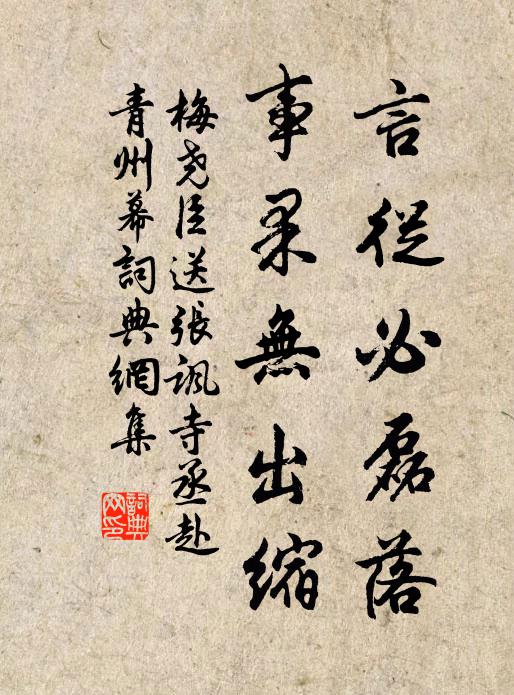 言從必磊落
事果無出縮
梅尧臣送張諷寺丞赴
青州幕詞典網集
詞典
网印